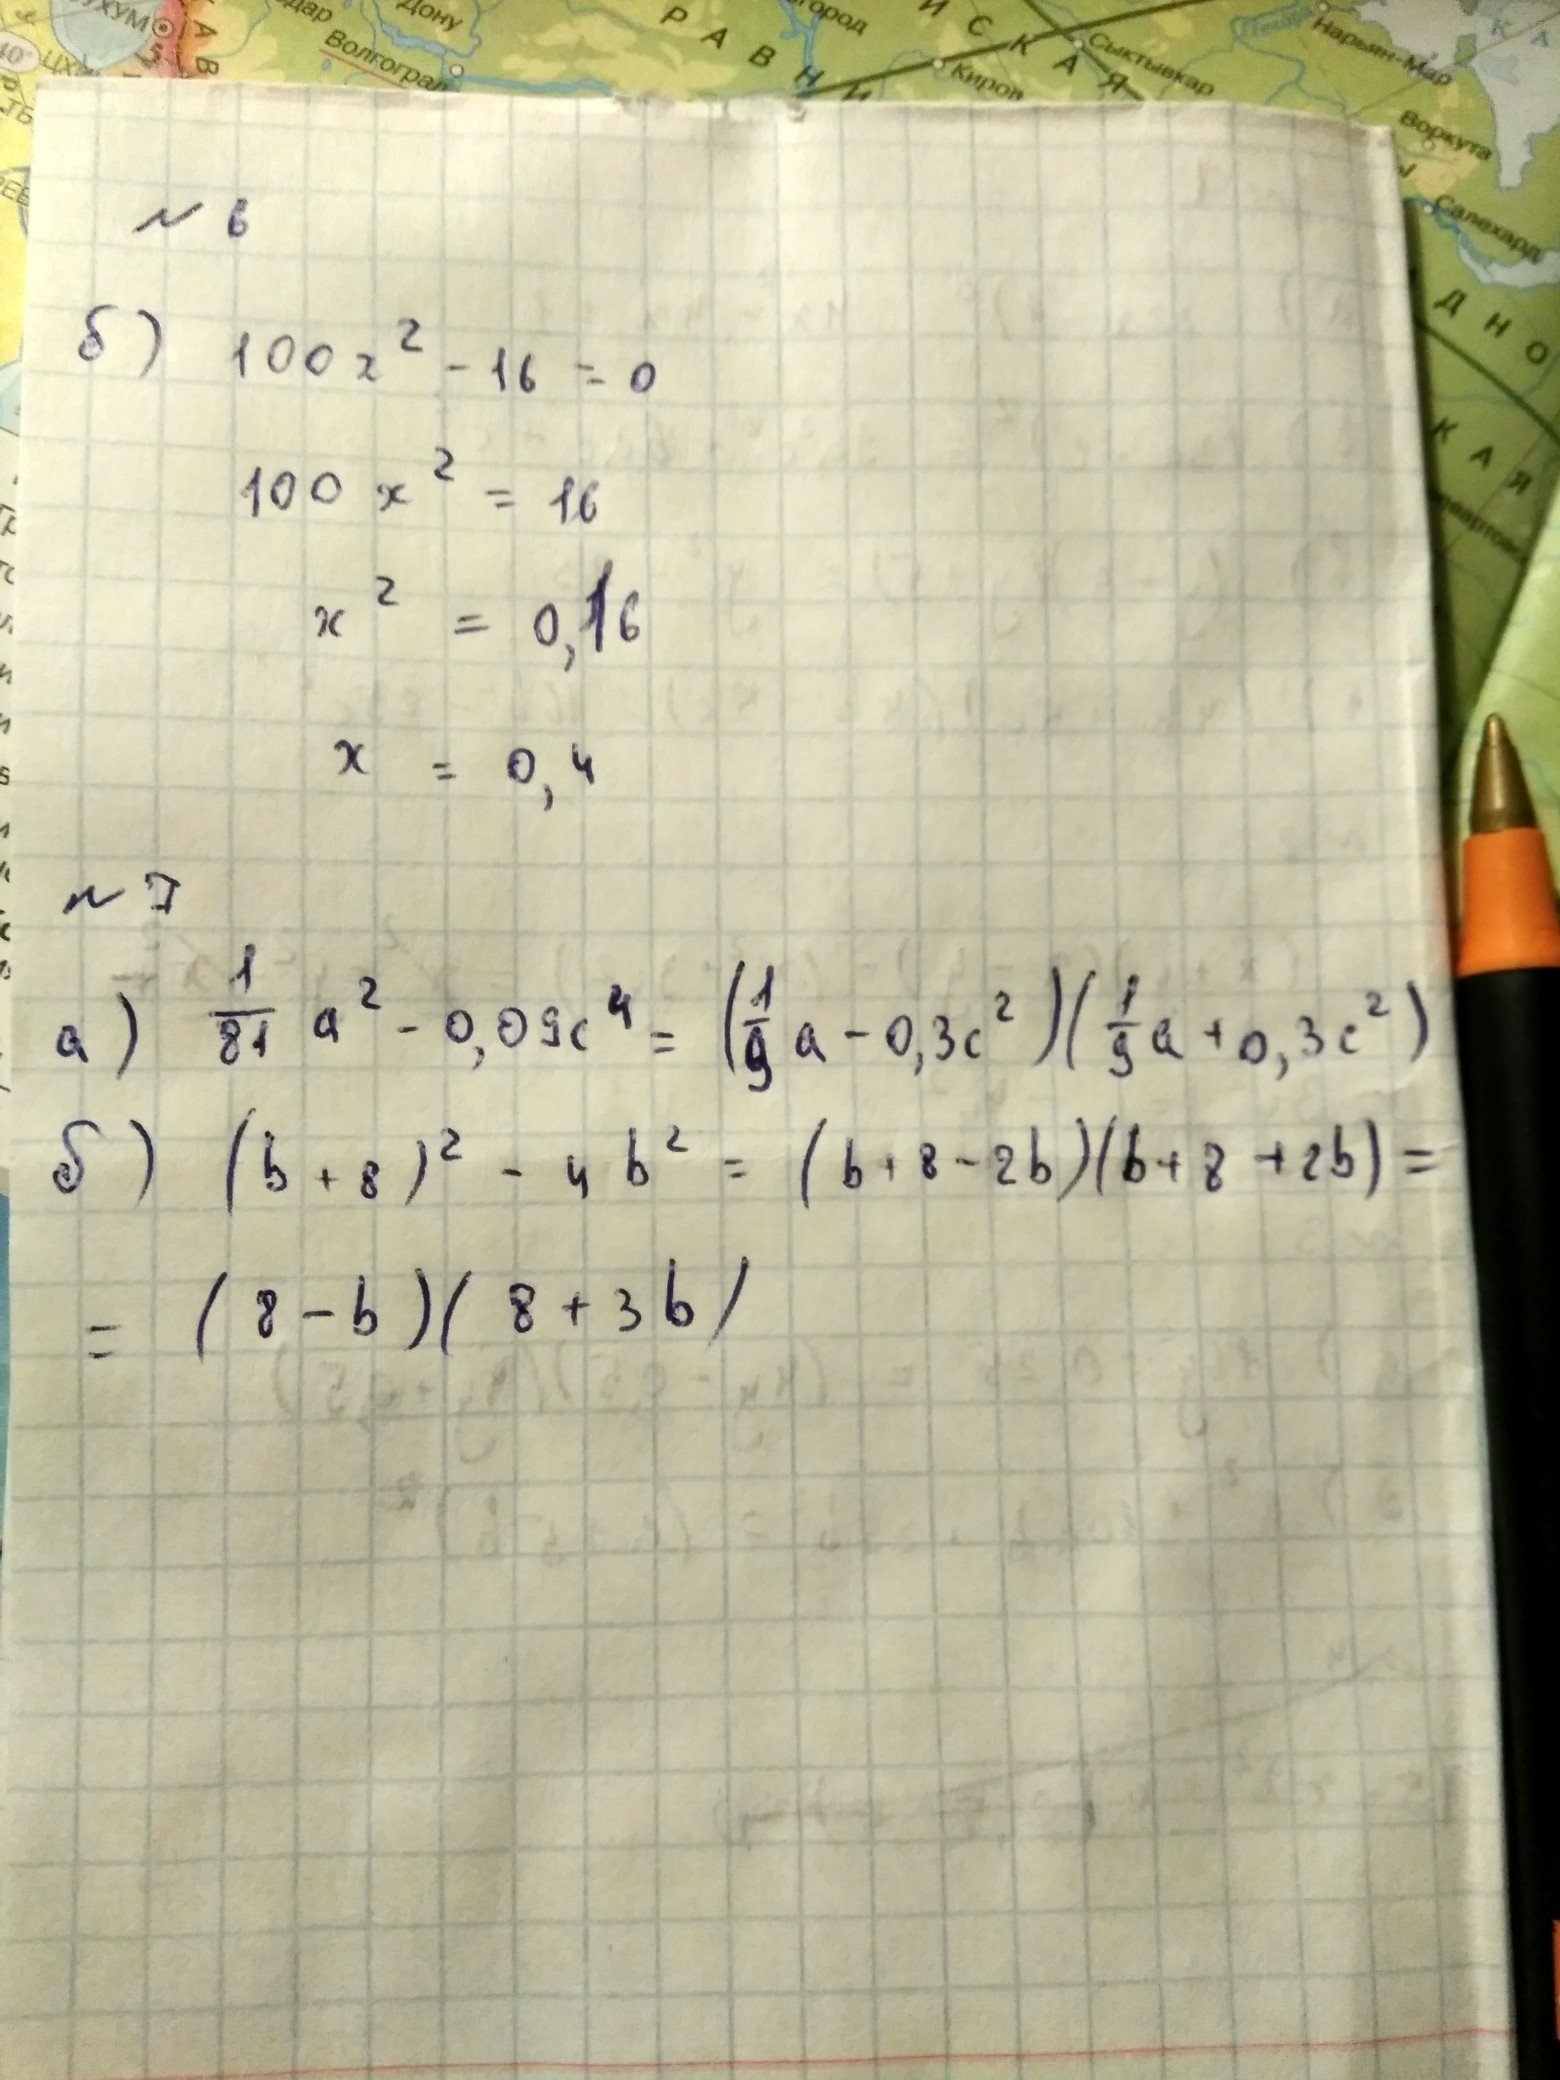 УХУМ
Дону
Волгоград
РАВНИ
город
ИСКАЯ
Киров
Сыктывкар
Нарьян-Мар
КА
Воркута
Салехард
ДНО
КАЯ
40°
АВ
N 6
б) 100x² - 16 = 0
100x² = 16
x² = 0,16
x = 0,4
N 7
а) 1/81 a² - 0,09c⁴ = (1/9 a - 0,3c²)(1/9 a + 0,3c²)
б) (b + 8)² - 4b² = (b + 8 - 2b)(b + 8 + 2b) =
= (8 - b)(8 + 3b)